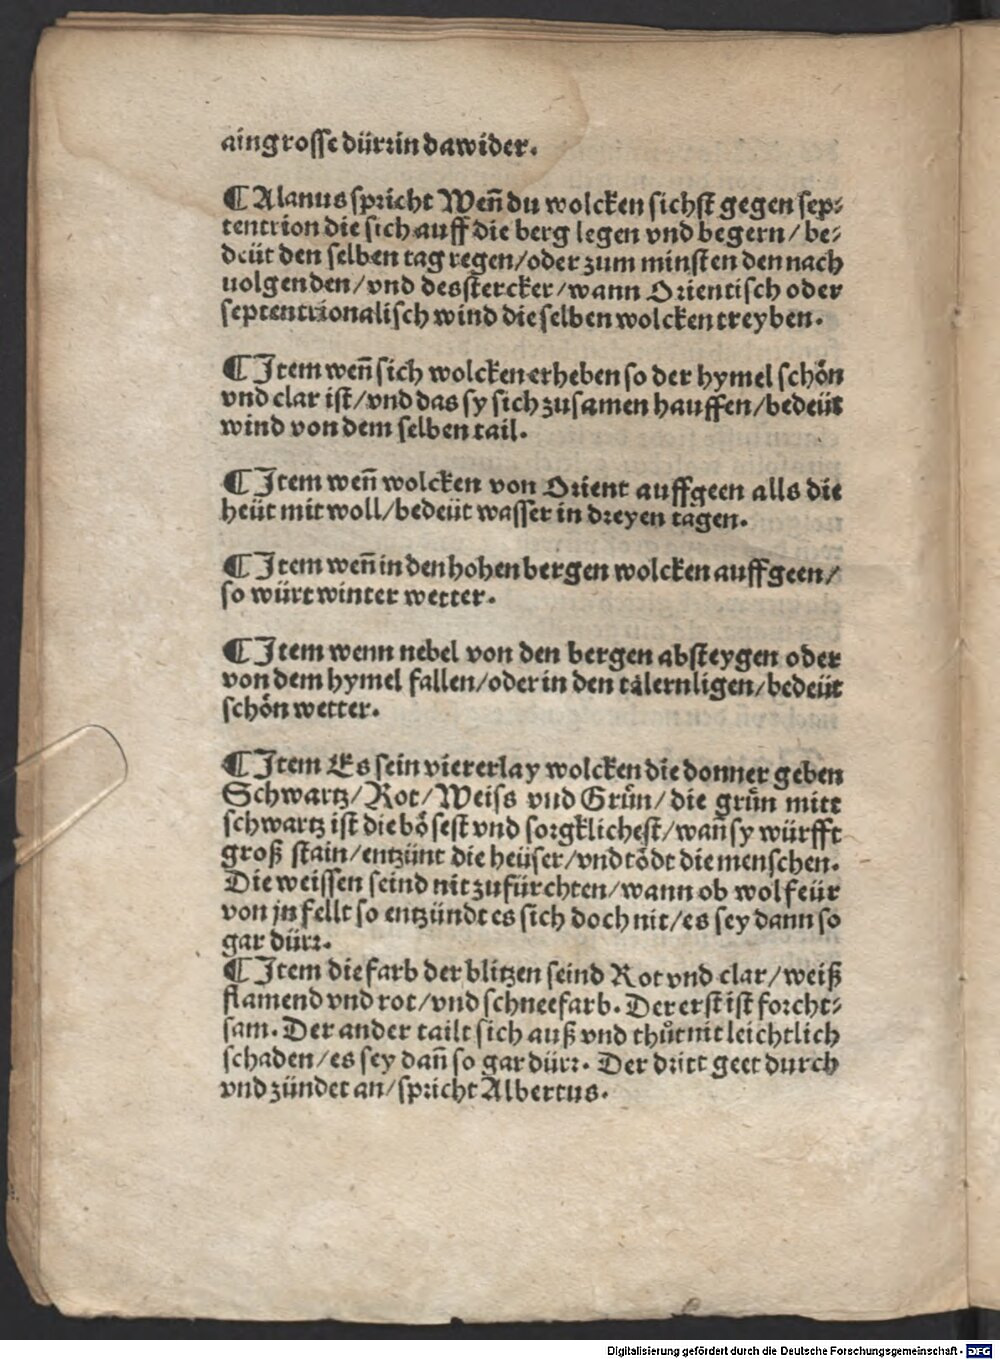 ain grosse dürrin dawider.
¶ Alanus spricht Weñ du wolcken sichst gegen sep⸗
tentrion die sich auff die berg legen vnd begern/ be⸗
deüt den selben tag regen/oder zum minsten den nach
uolgenden/vnd dessstercker/wann Orientisch oder
septentrionalisch wind die selben wolcken treyben.
¶ Item weñ sich wolcken erheben so der hymel schön
vnd clar ist/vnd das sy sich zusamen hauffen/bedeüt
wind von dem selben tail.
¶ Item weñ wolcken von Orient auffgeen alls die
heüt mit woll/bedeüt wasser in dreyen tagen.
¶ Item weñ in den hohen bergen wolcken auffgeen/
so würt winter wetter.
¶ Item wenn nebel von den bergen absteygen oder
von dem hymel fallen/oder in den tälern ligen/bedeüt
schön wetter.
¶ Item Es sein viererlay wolcken die donner geben
Schwartz/Rot/Weiss vnd Grün/die grün mitt
schwartz ist die bösest vnd sorgklichest/wañ sy würfft
groß stain/entzünt die heüser/vnd tödt die menschen.
Die weissen seind nit zufürchten/wann ob wol feür
von jn fellt so entzündt es sich doch nit/es sey dann so
gar dürr.
¶ Item die farb der blitzen seind Rot vnd clar/weiß
flamend vnd rot/vnd schneefarb. Der erst ist forcht⸗
sam. Der ander tailt sich auß vnd thůt nit leichtlich
schaden/es sey dañ so gar dürr. Der dritt geet durch
vnd zündet an/spricht Albertus.
Digitalisierung gefördert durch die Deutsche Forschungsgemeinschaft - DFG